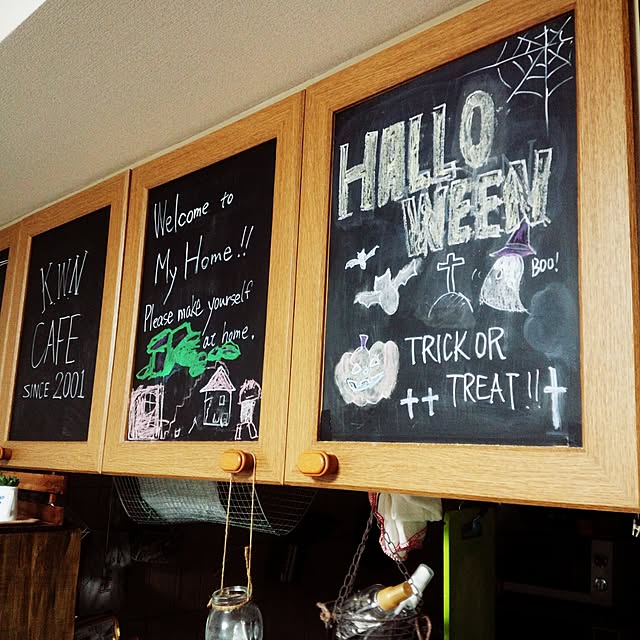 K.WN
CAFE
SINCE 2001
Welcome to
My Home!!
Please make yourself
at home.
HALLO
WEEN
BOO!
TRICK OR
TREAT!!